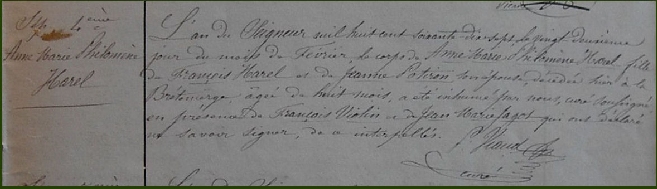 Sép. 4ème
Anne Marie Philomène
Harel
L'an du Seigneur mil huit cent soixante dix sept, le vingt deuxième
jour du mois de Février, le corps de Anne Marie Philomène Harel fille
de François Harel et de Jeanne Patron son épouse, décédée hier à la
âgée de huit mois, a été inhumé par nous, curé soussigné
en présence de François et de Jean Marie qui ont déclaré
ne savoir signer, de ce interpellés.
curé